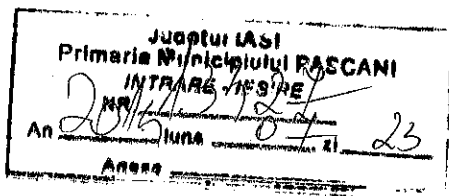 Județul IASI
Primaria Municipiului PASCANI
INTRARE - IESIRE
NR
An 2015 luna 07 zi 23
Anexe